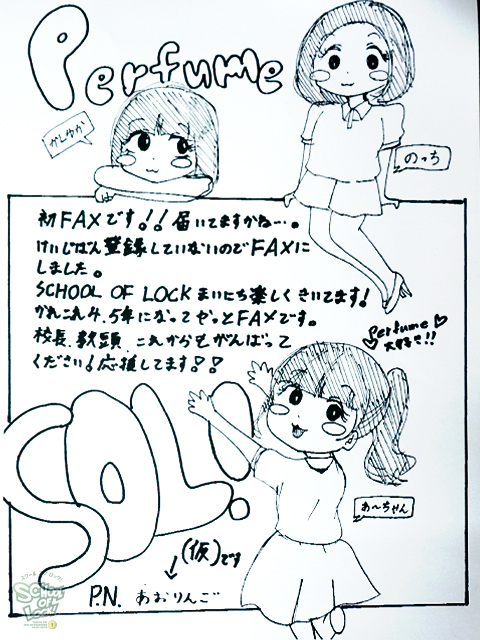 Perfume
かしゆか
のっち
初FAXです!!届いてますかね…。
けいじばん登録していないのでFAXに
しました。
SCHOOL OF LOCKまいにち楽しくきいてます!
かれこれ4.5年になってやっとFAXです。
校長、教頭 これからもがんばって
ください!応援してます!!
Perfume♡
♡大好き!!
SOL!
あ〜ちゃん
(仮)です
P.N. あおりんご
SCHOOL OF LOCK!